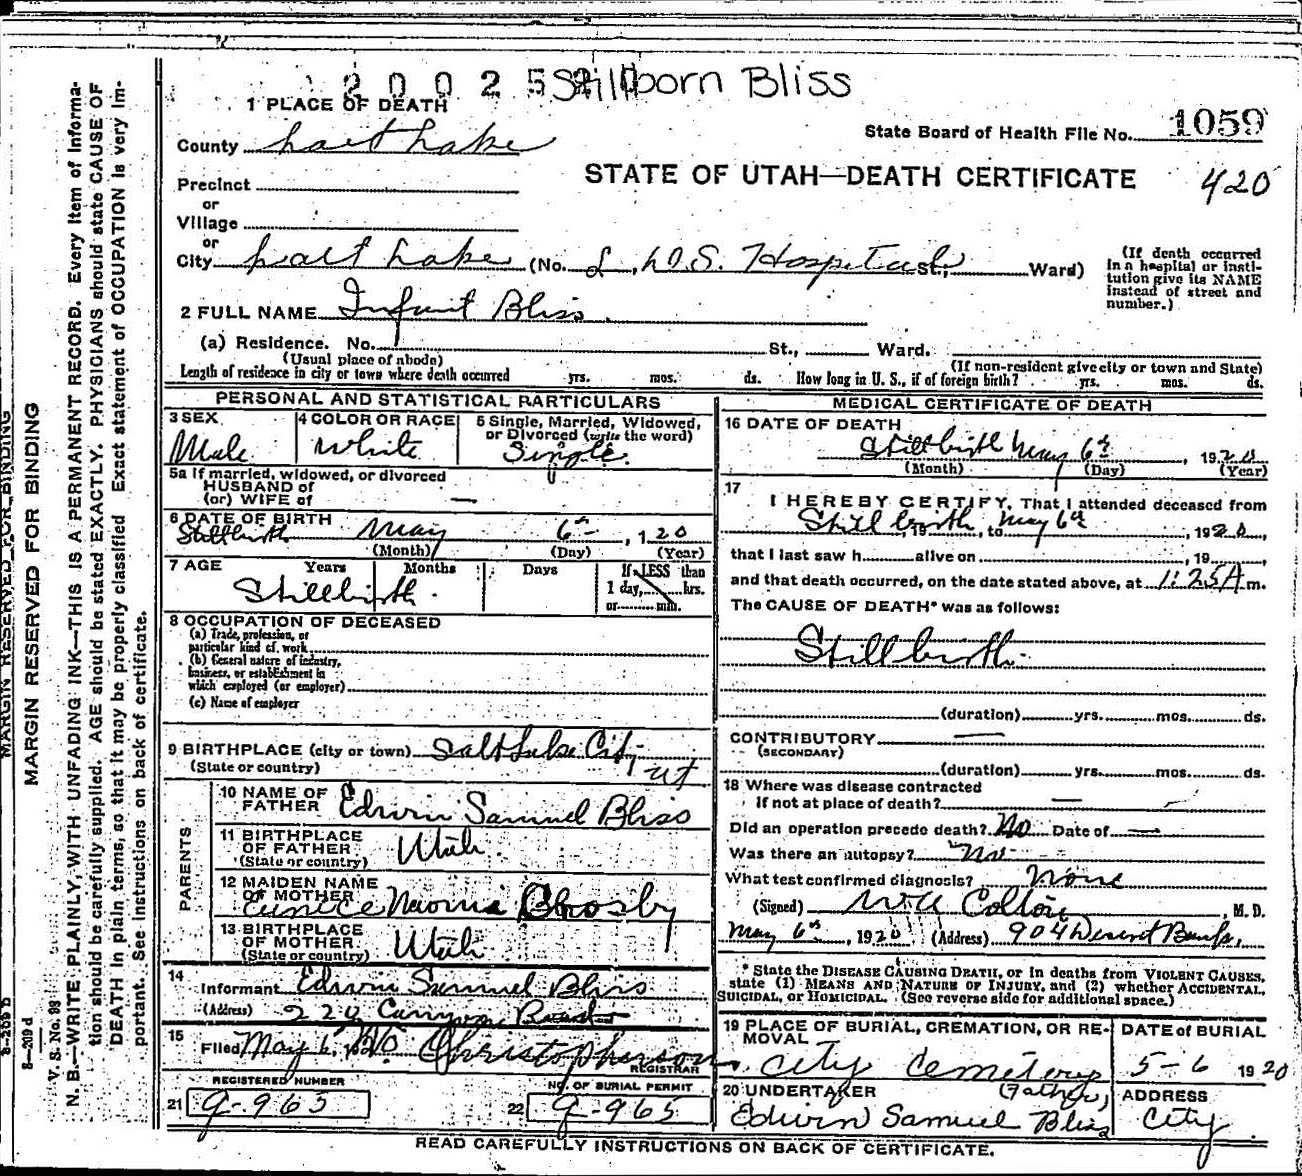 2 0 0 2 5 2 0 Stillborn Bliss
1 PLACE OF DEATH
State Board of Health File No. 1059
County Salt Lake
STATE OF UTAH—DEATH CERTIFICATE 420
Precinct
or
Village
or
City Salt Lake (No. L.D.S. Hospital St; Ward)
(If death occurred in a hospital or institution give its NAME instead of street and number.)
2 FULL NAME Infant Bliss
(a) Residence. No. St., Ward.
(Usual place of abode) (If non-resident give city or town and State)
Length of residence in city or town where death occurred yrs. mos. ds. How long in U. S., if of foreign birth? yrs. mos. ds.
PERSONAL AND STATISTICAL PARTICULARS
3 SEX Male
4 COLOR OR RACE White
5 Single, Married, Widowed, or Divorced (write the word) Single
5a If married, widowed, or divorced
HUSBAND of
(or) WIFE of —
6 DATE OF BIRTH
Stillbirth May 6th, 1920
(Month) (Day) (Year)
7 AGE Years Months Days If LESS than 1 day, hrs. or min.
Stillbirth
8 OCCUPATION OF DECEASED
(a) Trade, profession, or particular kind of work
(b) General nature of industry, business, or establishment in which employed (or employer)
(c) Name of employer
9 BIRTHPLACE (city or town) Salt Lake City
(State or country) Ut
PARENTS
10 NAME OF FATHER Edwin Samuel Bliss
11 BIRTHPLACE OF FATHER (State or country) Utah
12 MAIDEN NAME OF MOTHER Eunice Naomia Crosby
13 BIRTHPLACE OF MOTHER (State or country) Utah
14 Informant Edwin Samuel Bliss
(Address) 229 Canyon Road
15 Filed May 6, 1920 Christopherson
REGISTRAR
REGISTERED NUMBER
21 G-965
NO. OF BURIAL PERMIT
22 G-965
MEDICAL CERTIFICATE OF DEATH
16 DATE OF DEATH
Stillbirth May 6th, 1920
(Month) (Day) (Year)
17 I HEREBY CERTIFY, That I attended deceased from
Stillbirth, 19, to May 6th, 1920,
that I last saw h alive on , 19
and that death occurred, on the date stated above, at 1:25 A m.
The CAUSE OF DEATH* was as follows:
Stillbirth
(duration) yrs. mos. ds.
CONTRIBUTORY —
(SECONDARY)
(duration) yrs. mos. ds.
18 Where was disease contracted
If not at place of death? —
Did an operation precede death? No Date of —
Was there an autopsy? No
What test confirmed diagnosis? None
(Signed) W A Colton, M. D.
May 6th, 1920 (Address) 904 Deseret Bank.
* State the DISEASE CAUSING DEATH, or in deaths from VIOLENT CAUSES, state (1) MEANS AND NATURE OF INJURY, and (2) whether ACCIDENTAL, SUICIDAL, or HOMICIDAL. (See reverse side for additional space.)
19 PLACE OF BURIAL, CREMATION, OR REMOVAL
City Cemetery
DATE of BURIAL
5-6 1920
20 UNDERTAKER (Father)
Edwin Samuel Bliss
ADDRESS
City
READ CAREFULLY INSTRUCTIONS ON BACK OF CERTIFICATE.
MARGIN RESERVED FOR BINDING
MARGIN RESERVED FOR BINDING
V. S. No. 99
N. B.—WRITE PLAINLY, WITH UNFADING INK—THIS IS A PERMANENT RECORD. Every item of information should be carefully supplied. AGE should be stated EXACTLY. PHYSICIANS should state CAUSE OF DEATH in plain terms, so that it may be properly classified. Exact statement of OCCUPATION is very important. See instructions on back of certificate.